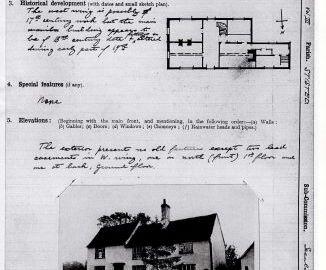 3. Historical development (with dates and small sketch plan).
The west wing is possibly of
17th century work but the main
number building appears to
be of 18th century date &
during early part of 19th
4. Special features (if any).
None
5. Elevations: (Beginning with the main front, and mentioning, in the following order:—(a) Walls:
(b) Gables; (c) Doors; (d) Windows; (e) Chimneys; (f) Rainwater heads and pipes.)
The exterior presents no old features except two lead
casements in W. wing, one on north (front) 1st floor and
one at back, Ground floor.
Parish.
Sub-Commission.